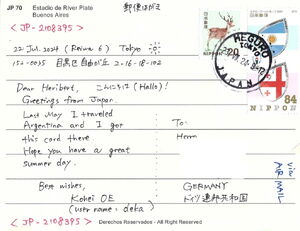 JP 70 Estadio de River Plate
Buenos Aires
郵便はがき
< JP-2108395 >
22 Jul. 2024 (Reiwa 6) Tokyo
152-0035 目黒区自由が丘 2-16-18-102
Dear Heribert, こんにちは (Hallo)!
Greetings from Japan.
Last May I traveled
Argentina and I got
this card there.
Hope you have a great
summer day.
Best wishes,
Kohei OE
(user name: deka)
< JP-2108395 >
20
MEGURO
TOKYO
JAPAN
NIPPON
NIPPON
84
To:
Herrn
GERMANY
ドイツ連邦共和国
via
AIR MAIL
Derechos Reservados - All Right Reserved